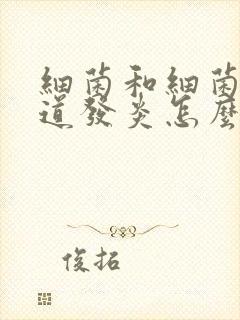 細菌和細菌
道發炎怎麼
俊拓